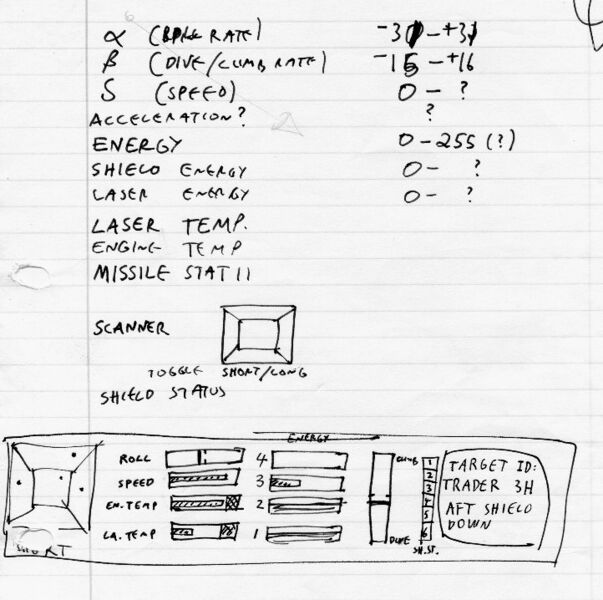 α (ROLL RATE) -31 - +31
β (DIVE/CLIMB RATE) -15 - +16
δ (SPEED) 0 - ?
ACCELERATION? ?
ENERGY 0 - 255 (?)
SHIELD ENERGY 0 - ?
LASER ENERGY 0 - ?
LASER TEMP.
ENGINE TEMP
MISSILE STATII
SCANNER
TOGGLE SHORT/LONG
SHIELD STATUS
ENERGY
ROLL 4 CLIMB 1 TARGET ID:
SPEED 3 2 TRADER 3H
EN.TEMP 2 3 AFT SHIELD
LA.TEMP 1 4 DOWN
5
6
SHORT DIVE SH.ST.